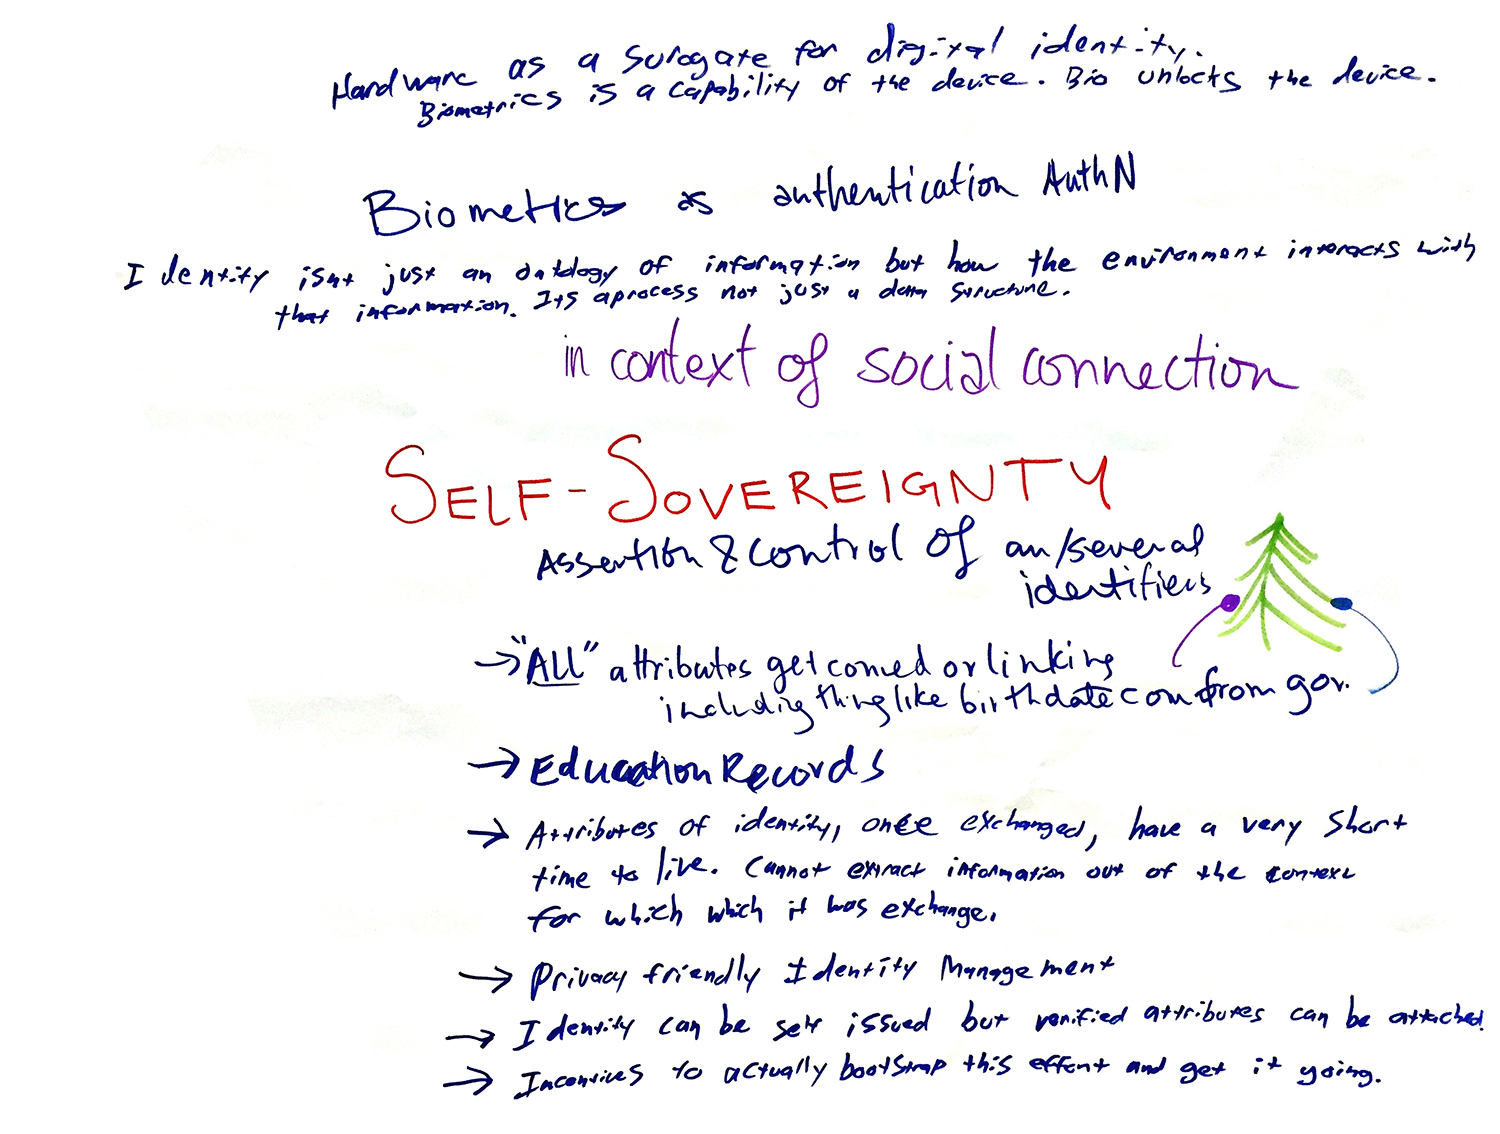 Hardware as a surogate for digital identity.
Biometrics is a capability of the device. Bio unlocks the device.
Biometics as authentication AuthN
Identity isnt just an ontology of information but how the environment interacts with
that information. Its a process not just a data structure.
in context of social connection
SELF-SOVEREIGNTY
Assertion & control of an/several
identifiers
→ "ALL" attributes get conned or linking
including thing like birthdate com from gov.
→ Education Records
→ Attributes of identity, once exchanged, have a very short
time to live. Cannot extract information out of the context
for which which it was exchange.
→ Privacy friendly Identity Management
→ Identity can be self issued but verified attributes can be attached.
→ Incentives to actually bootstrap this effort and get it going.